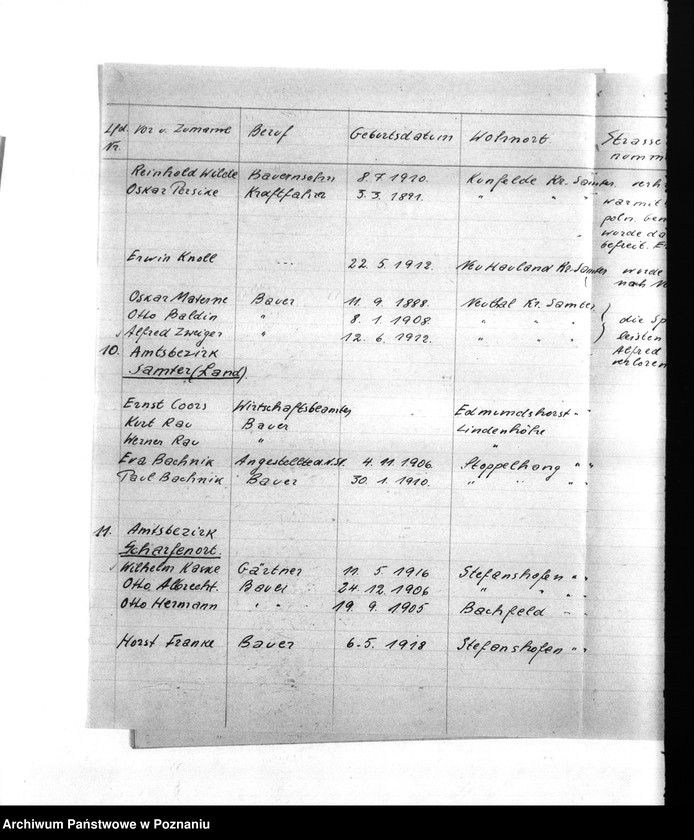 Lfd. Vor u. Zuname Beruf Geburtsdatum Wohnort. Strasse
Nr. numm
Reinhold Wilde Bauernsohn 8. 7. 1920. Kunfelde Kr. Samter. verh
Oskar Persike Kraftfahrer 3. 3. 1891. " " " war mit
poln. Gen
wurde da
befreit. E
Erwin Knoll 22. 5. 1912. Neu Hauland Kr. Samter wurde
nach
Oskar Materne Bauer 11. 9. 1888. Neuthal Kr. Samter.
Otto Baldin " 8. 1. 1908. " " " die Sp
Alfred Zweiger " 12. 6. 1922. " " " leisten
10. Amtsbezirk Alfred
Samter (Land). verloren
Ernst Coors Wirtschaftsbeamter Edmundshorst " "
Kurt Rau Bauer Lindenhöhe
Werner Rau " "
Eva Bachnik Angestellte d. N.St. 4. 11. 1906. Stoppelhang " "
Paul Bachnik Bauer 30. 1. 1910. " " " "
11. Amtsbezirk
Scharfenort.
Wilhelm Gärtner 11. 5 1916 Stefanshofen " "
Otto Albrecht. Bauer 24. 12. 1906 " " "
Otto Hermann " " 19. 9. 1905 Bachfeld " "
Horst Franke Bauer 6. 5. 1918 Stefanshofen " "
Archiwum Państwowe w Poznaniu